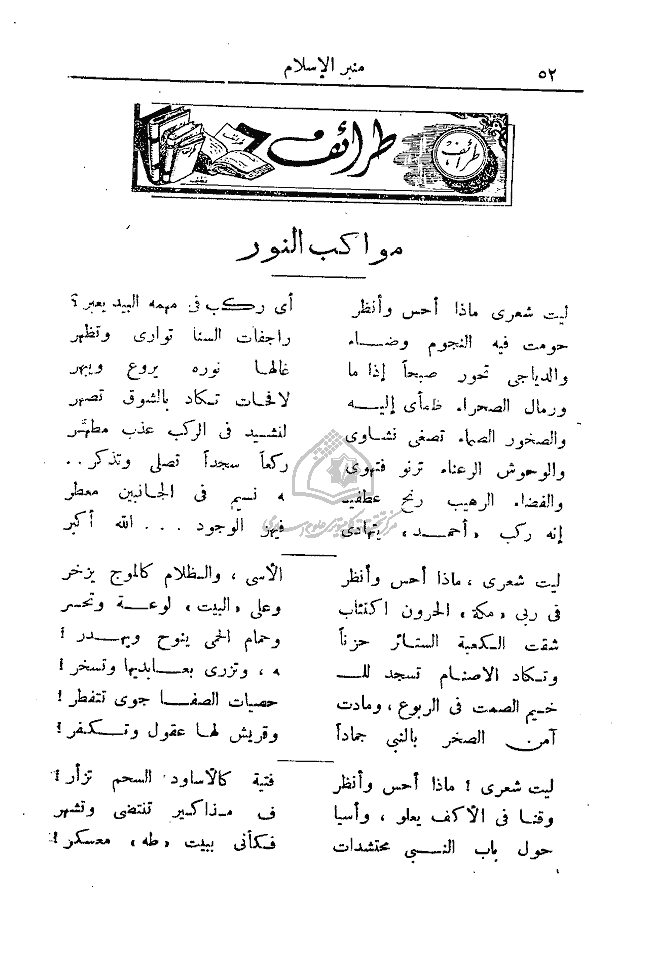 ٥٢
منبر الإسلام
طرائف
طرائف
مواكب النور
ليت شعرى ماذا أحس وأنظر أى ركب فى مهمه البيد يعبر ؟
حومت فيه النجوم وضاء راجفات السنا توارى وتظهر
والدياجى تحور صبحاً إذا ما غالها نوره يروع ويبهر
ورمال الصحراء ظمأى إليه لافحات تكاد بالشوق تصهر
والصخور الصماء تصغى نشاوى لنشيد فى الركب عذب مطهر
والوحوش الرعناء ترنو فتهوى ركعاً سجداً تصلى وتذكر . .
والفضاء الرهيب رنح عطفيـ ـه نسيم فى الجانبين معطر
إنه ركب «أحمد» يتهادى فيهز الوجود . . . الله أكبر
ليت شعرى ، ماذا أحس وأنظر الأسى ، والظلام كالموج يزخر
فى ربى «مكة» الحرون اكتئاب وعلى «البيت» لوعة وتحسر
شقت الكعبة الستائر حزناً وحمام الحمى ينوح ويهدر !
وتكاد الاصنام تسجد للـ ـه ، وتزرى بعابديها وتسخر !
خيم الصمت فى الربوع ، ومادت حصيات الصفا جوى تتفطر !
آمن الصخر بالنبي جماداً وقريش لها عقول وتكفر !
ليت شعرى ! ماذا أحس وأنظر فتية كالأساود السحم تزأر !
وقنا فى الأكف يعلو ، وأسيا ف مذاكير تنتضى وتشهر
حول باب النبي محتشدات فكأنى ببيت «طه» معسكر !